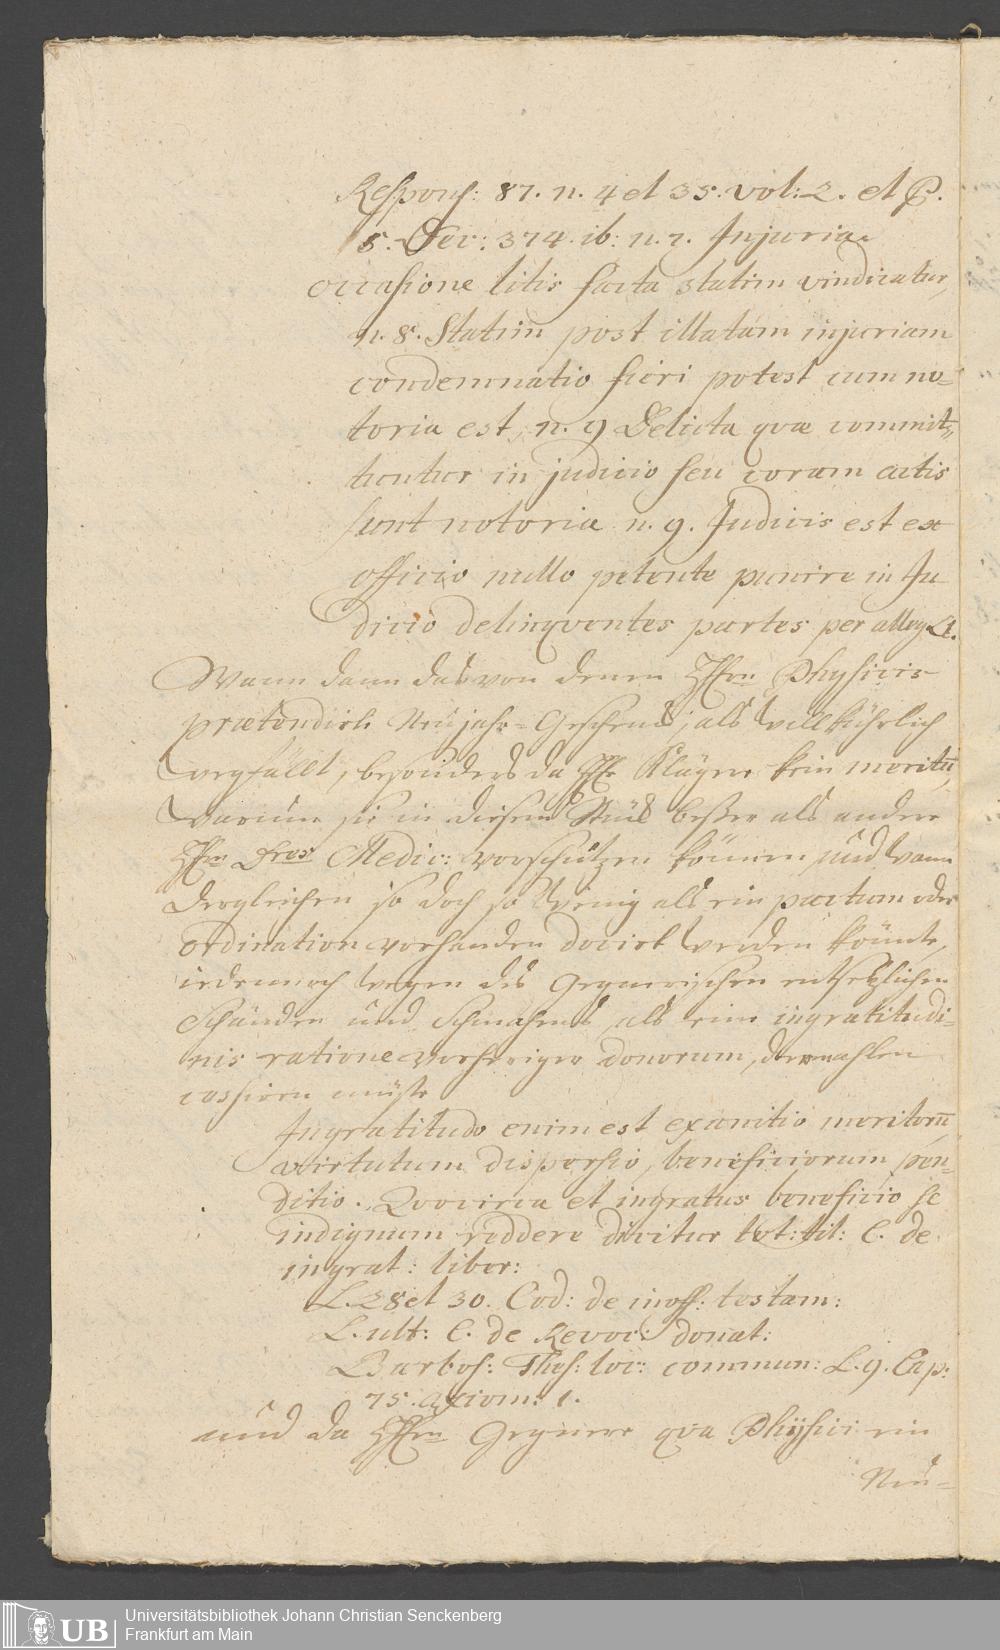 Respons: 87. n. 4 et 35. vol: 2. et P.
5. Dec: 374. ib: n. 7. Injuria
occasione litis facta statim vindicatur,
n. 8. Statim post illatam injuriam
condemnatio fieri potest cum no-
toria est, n. 9 Delicta qvæ commit-
tuntur in judicio seu coram actis
sunt notoria n. 9. Judicis est ex
officio nullo petente punire in Ju
dicio delinqventes partes per alleg
Wann dann das von denen Hhrn Physicis
prætendirte Neujahr-Geschenck, als willkührlich
wegfällt, besonders da Hhr Klägere kein meritu,
warum sie in diesem Stück beßer als andere
Hhrn Dres Medic: vorschützen können und wann
dergleichen so doch so wenig als ein pactum oder
ordination vorhanden docirt werden könnte,
iedennoch wegen des Gegnerischen entsetzlichen
Schänden und Schmähens als eine ingratitudi-
nis ratione voriger donorum, dermahlen
cessiren müste
Ingratitudo enim est exanitio meritoru,
virtutum dispersio, beneficiorum per-
ditio. Qvocirca et ingratus beneficio se
indignum reddere dicitur tot: tit: C. de
ingrat: liber:
L. 28 et 30. Cod: de inoff: testam:
L. ult: C. de Revoc: donat:
Barbos: Thes: loc: commun: L. 9. Cap:
75. axiom: 1.
und da Hhrn Gegnere qva Physici ein
Neu-
Universitätsbibliothek Johann Christian Senckenberg
Frankfurt am Main
UB